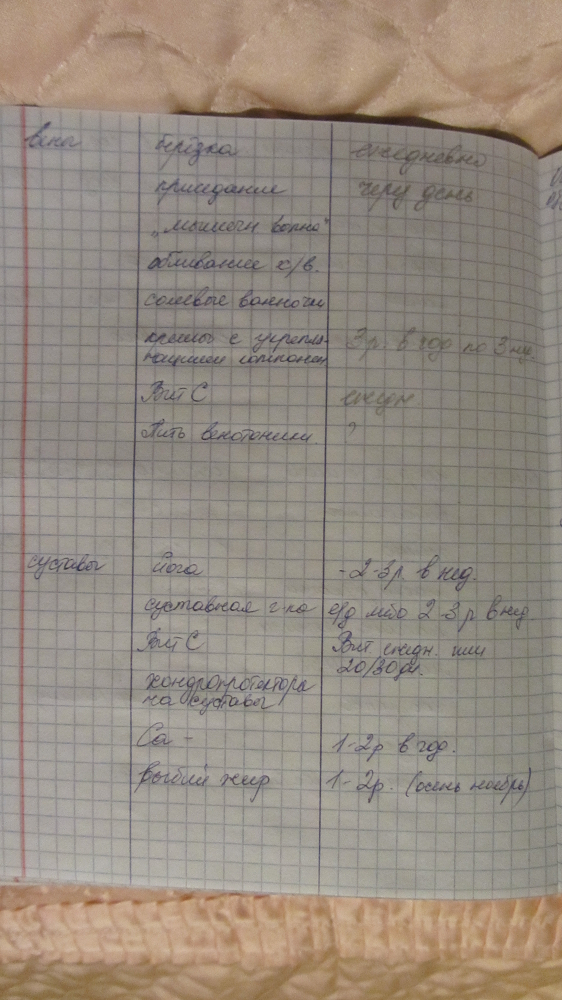 вены берёзка ежедневно
приседание через день
„мышечн помпа"
обливание х/в.
солевые ванночки
кремы с укрепля-
ющими компонен 3 р. в год по 3 нед.
Вит С ежедн
Пить венотоники ?
суставы йога -2-3р. в нед.
суставная г-ка е/д либо 2-3 р в нед
Вит С Вит. ежедн. или
20/30дн.
хондропротектора
на суставы
Ca - 1-2р в год.
рыбий жир 1-2р. (осень ноябрь)